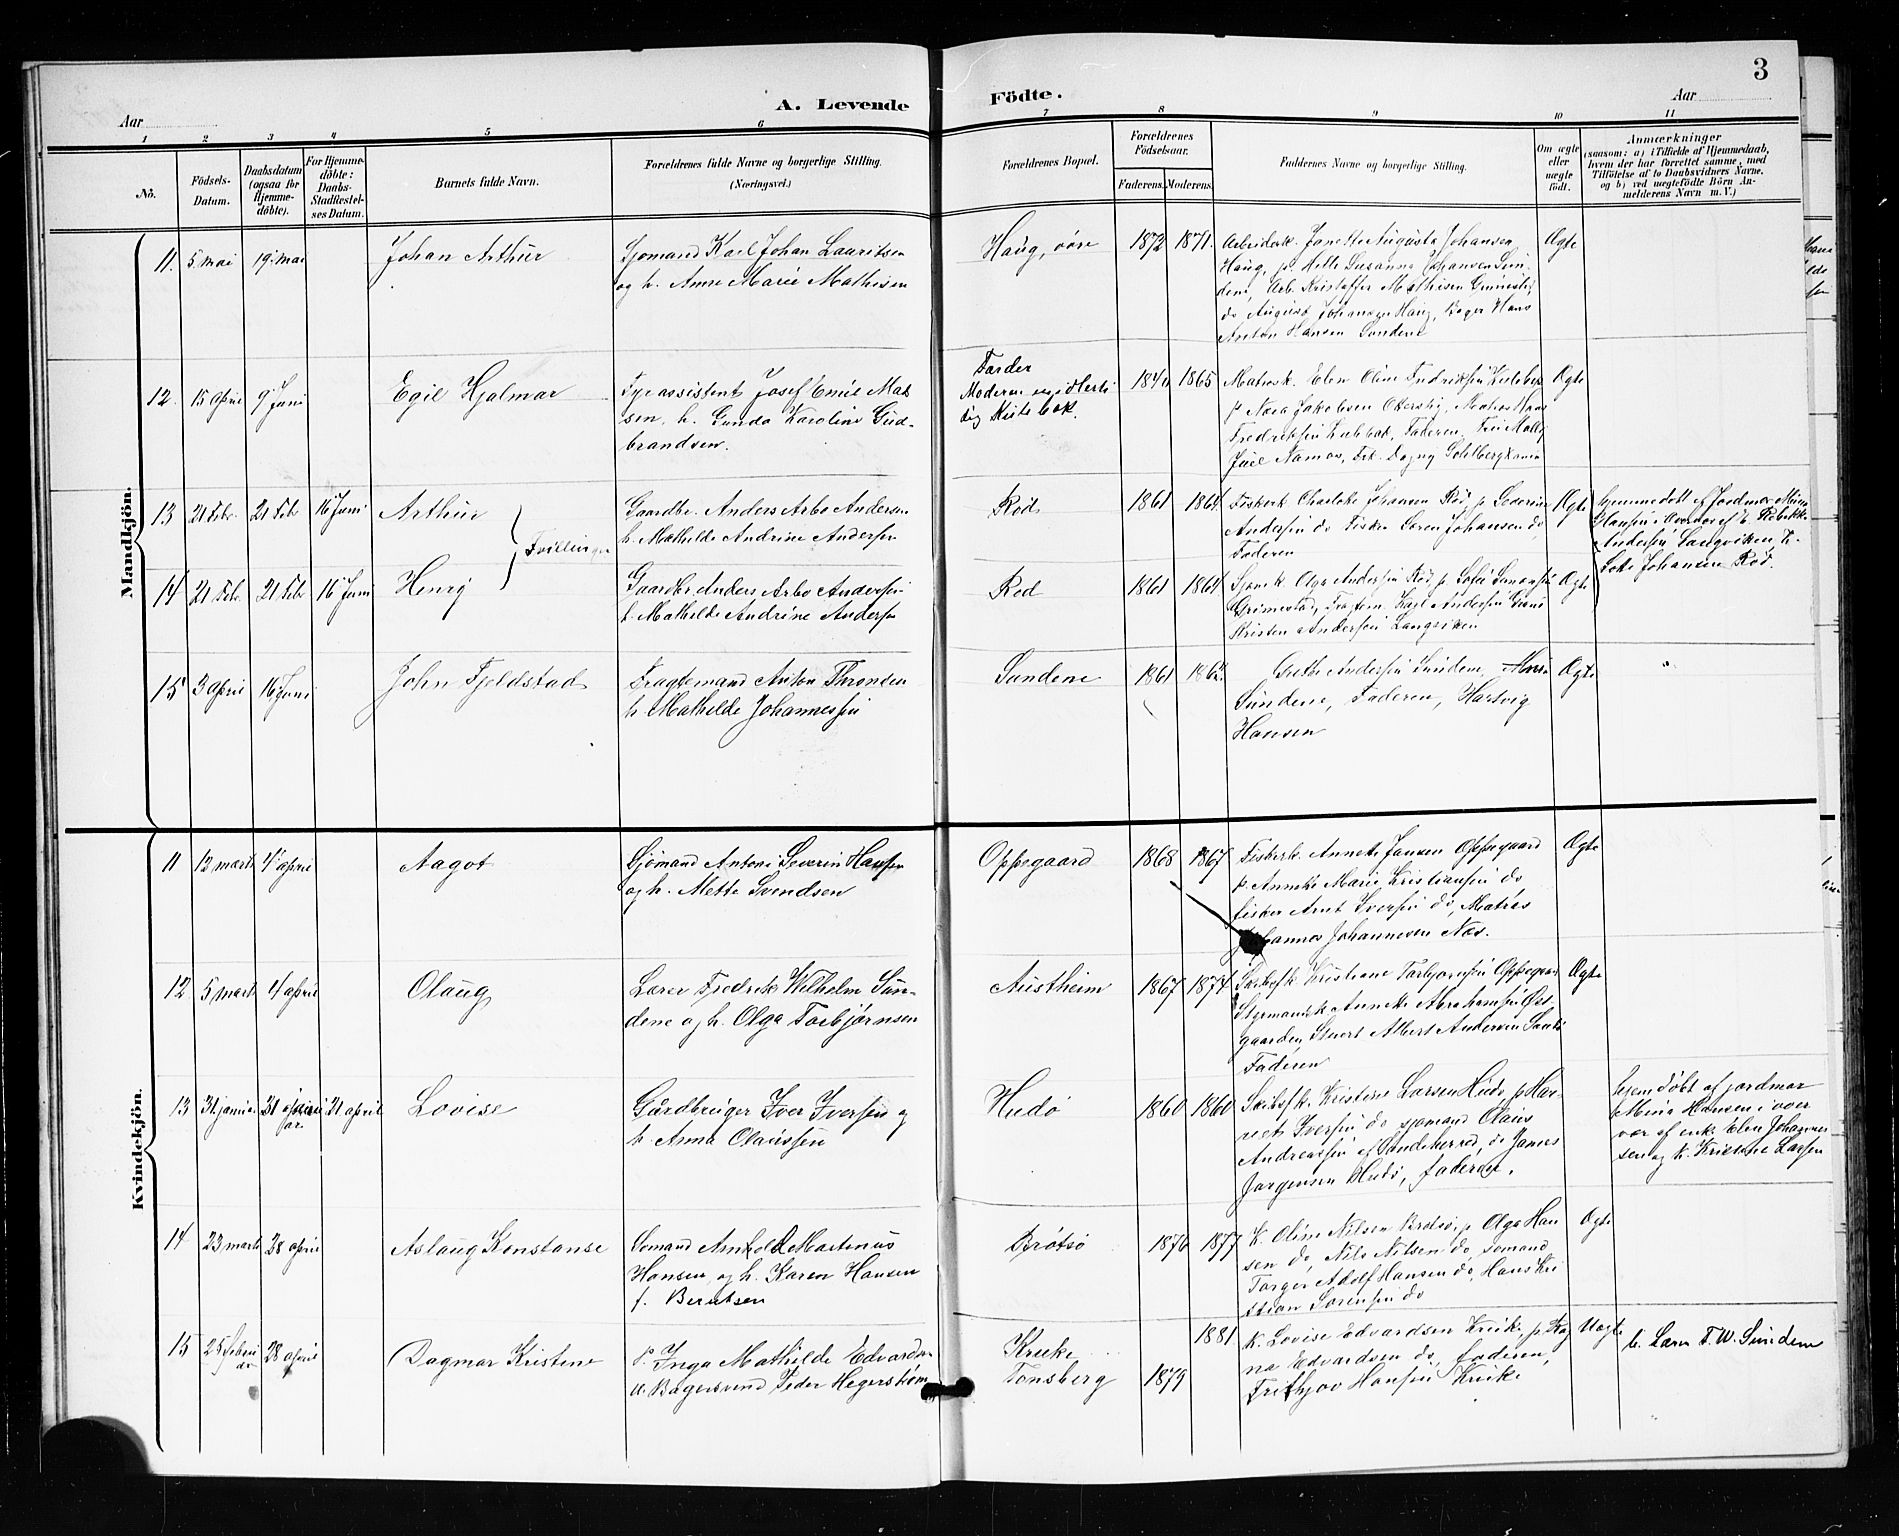 3
A. Levende Födte.
Aar
Aar
1 2 3 4 5 6 7 8 9 10 11
No.
Födsels-
Datum.
Daabsdatum
(ogsaa for
Hjemme-
döbte).
For Hjemme-
döbte:
Daabs-
Stadfæstel-
ses Datum.
Barnets fulde Navn.
Forældrenes fulde Navne og borgerlige Stilling.
(Næringsvei.)
Forældrenes Bopæl.
Forældrenes
Födselsaar.
Faderens. Moderens.
Faddernes Navne og borgerlige Stilling.
Om ægte
eller
uægte
födt.
Anmærkninger
(saasom: a) i Tilfælde af Hjemmedaab,
hvem der har forrettet samme, med
Tilföielse af to Daabsvidners Navne.
og b) ved uægtefödte Börn An-
melderens Navn m. V.)
Mandkjön.
11. 5 mai 19 mai
Johan Arthur
Sjømand Karl Johan Lauritsen
og h. Anne Marie Mathisen
Haug, øore
1872 1871.
Arbeidsk. Janette Augusta Johansen
Haug, p. Helle Susanna Johansen Sun-
dene, Arb. Kristoffer Mathisen Grimestad,
do August Johansen Haug, Bager Hans
Anton Hansen Sundene
Ægte
12. 15 April 9 Juni
Egil Hjalmar
Fyrassistent Josef Emil Mat
sen, h. Gunda Karoline Gud-
brandsen.
Færder
Moderen
1865
Matrosk. Elen Oline Fredriksen
p Nora Jakobsen Matros Hans
Fredriksen Faderen, Fru
Juel Namos, Frk. Dagny
Ægte
13 21 Febr. 21 Feb 16 Juni
Arthur
Tvillinger
Gaardbr. Anders Arbo Andersen
h. Mathilde Andrine Andersen
Rød
1861 1864.
Fiskerk Charlotte Johansen Rød, p Severine
Andersen do Fisker Søren Johansen do,
Faderen
Ægte
hjemmedøbt af Jordmor Mina
Hansen i Overvær af E.
Andersen Langviken, h.
Lotte Johansen Rød.
14 21 Feb. 21 Feb 16 Juni
Henry
Gaardbr. Anders Arbo Andersen
h. Mathilde Andrine Andersen
Rød
1861 1864.
Sjømk. Olga Andersen Rød, p. Sofie Simonsen
Grimestad, Fragtem. Karl Andersen
Kristen Andersen Langviken
Ægte
15 3 April 16 Juni
John Fjeldstad
Fragtemand Anton Thronsen
h Mathilde Johannessen
Sundene
1861
Grethe Andersen Sundene,
Sundene, Faderen, Hartvig
Hansen
Ægte
"
Kvindekjön.
11 12 marts 4 april
Aagot
Sjømand Anton Severin Hansen
og h. Mette Svendsen
Oppegaard
1868 1867
Fiskerk. Annette Jansen Oppegaard
p. Anneke Marie Kristiansen do
fisker Arnt Iversen do, Matros
Johannes Johannesen Næs.
Ægte
12 5 marts 4 april
Olaug
Lærer Fredrik Wilhelm Sun-
dene og h. Olga Torbjørnsen
Austheim
1867 1874
Skibsfk Kristiane Torbjørnsen Oppegaar
Styrmansk Anneke Abrahamsen Øst-
gaarden, Stuert Albert Andersen
Faderen
Ægte
13 31 janua 31 januar 31 april
Lovise
Gårdbruger Iver Iversen og
h. Anna Olaussen
Hudø
1860 1860
Skibsfk. Kristine Larsen Hudø, p Har-
riet Iversen do sjømand Olaus
Andreassen af Sandeherred, do James
Jørgensen Hudø, faderen.
hjemdøbt af jordmor
Mina Hansen i over
vær af enk Elen Johannes
sen og k. Kristine Larsen
14 23 marts 28 april
Aslaug Konstanse
Sømand Arnhold Martinus
Hansen og h. Karen Hansen
f. Berntsen
Brøtsø
1876 1877
K. Oline Nilsen Brøtsø, p Olga Han
sen do, Nils Nilsen do, sømand
Torger Adolf Hansen do, Hans Kri
stian Sørensen do
Ægte
15 25 febru
ar 28 april
Dagmar Kristine
P. Inga Mathilde Edvardsen
u. Bagersvend Peder Hegerstrøm
Kruke
Tønsberg
1879
1881
K. Lovise Edvardsen Kruke, p Rag
na Edvardsen do, faderen,
Frithjov Hansen Kruke
Uægte
v. Lærer F. W. Sundene